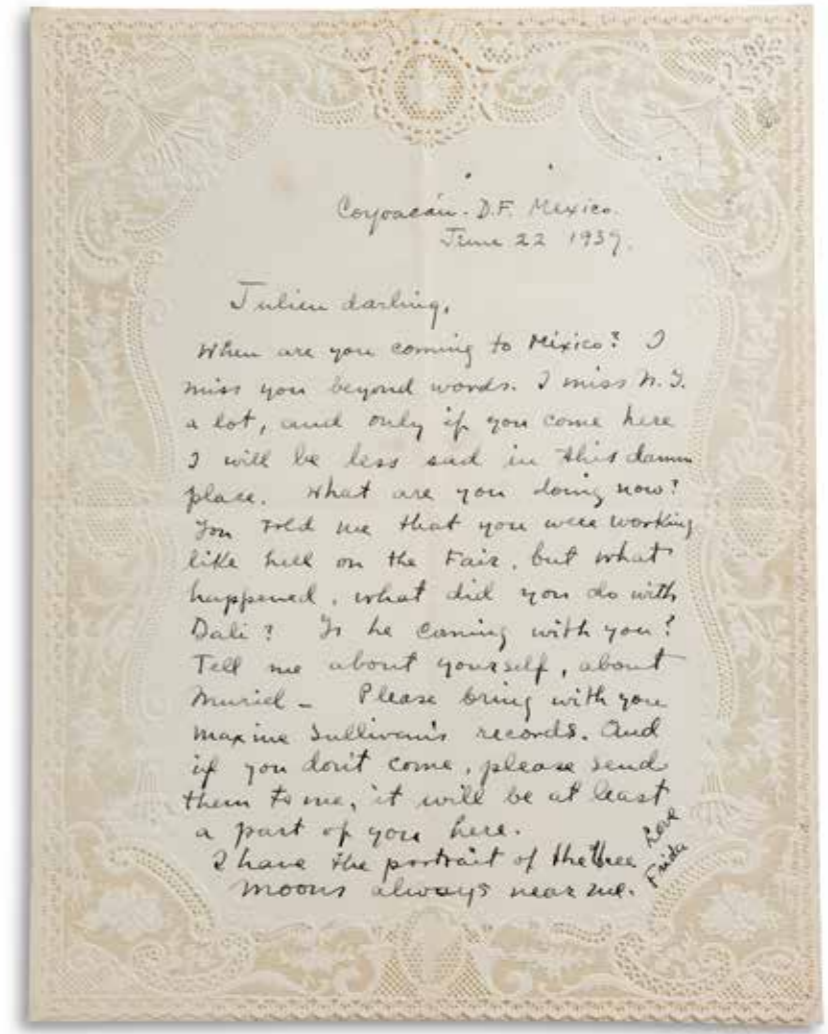 Coyoacán. D.F. Mexico.
June 22 1939.
Julien darling,
When are you coming to México? I
miss you beyond words. I miss N.Y.
a lot, and only if you come here
I will be less sad in this damm
place. What are you doing now?
You told me that you were working
like hell on the Fair, but what
happened, what did you do with
Dali? Is he coming with you?
Tell me about yourself, about
Muriel – Please bring with you
Maxine Sullivan's records. And
if you don't come, please send
them to me, it will be at least
a part of you here.
I have the portrait of the three
moons always near me.
Love
Frida